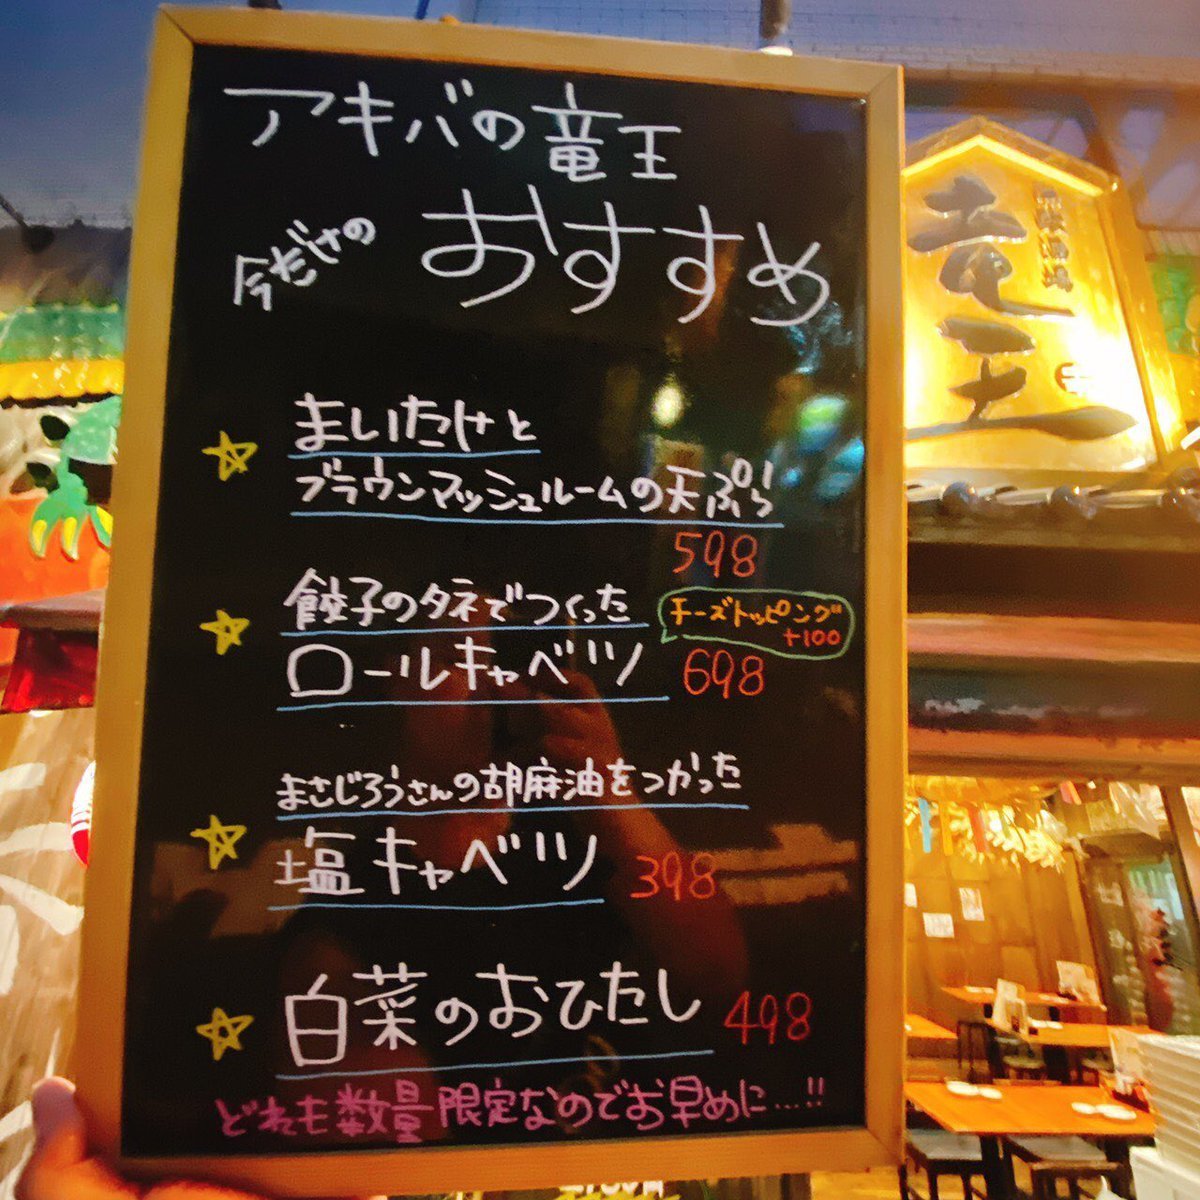 アキバの竜王
今だけの
おすすめ
まいたけと
ブラウンマッシュルームの天ぷら
598
餃子のタネでつくった
ロールキャベツ
チーズトッピング
+100
698
まさじろうさんの胡麻油をつかった
塩キャベツ 398
白菜のおひたし 498
どれも数量限定なのでお早めに…!!
竜王